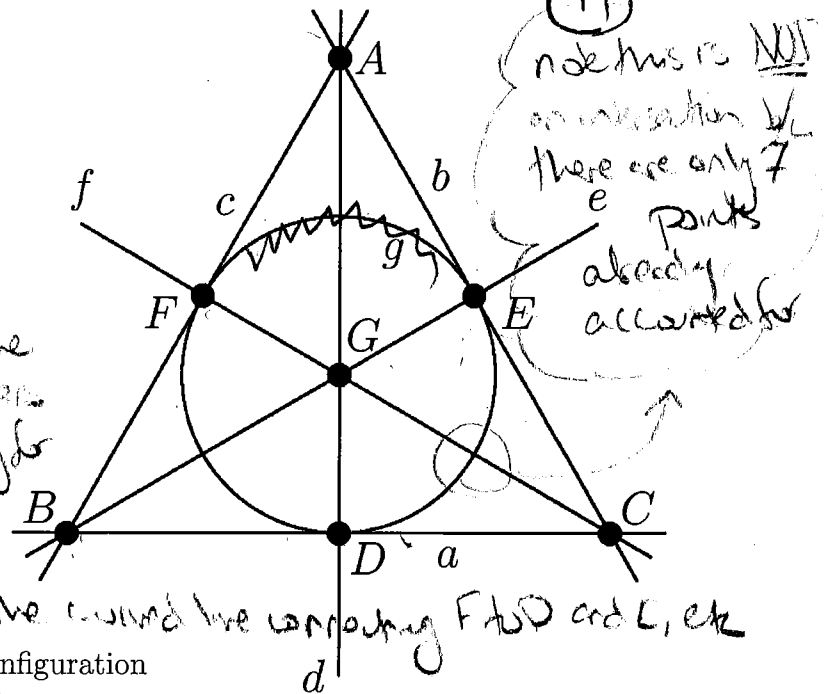 A
note this is NOT
an intersection b/c
there are only 7
points
already
accounted for
f
c
b
e
g
F
E
G
B
C
D
a
line connecting F to D and E, etc
nfiguration
d